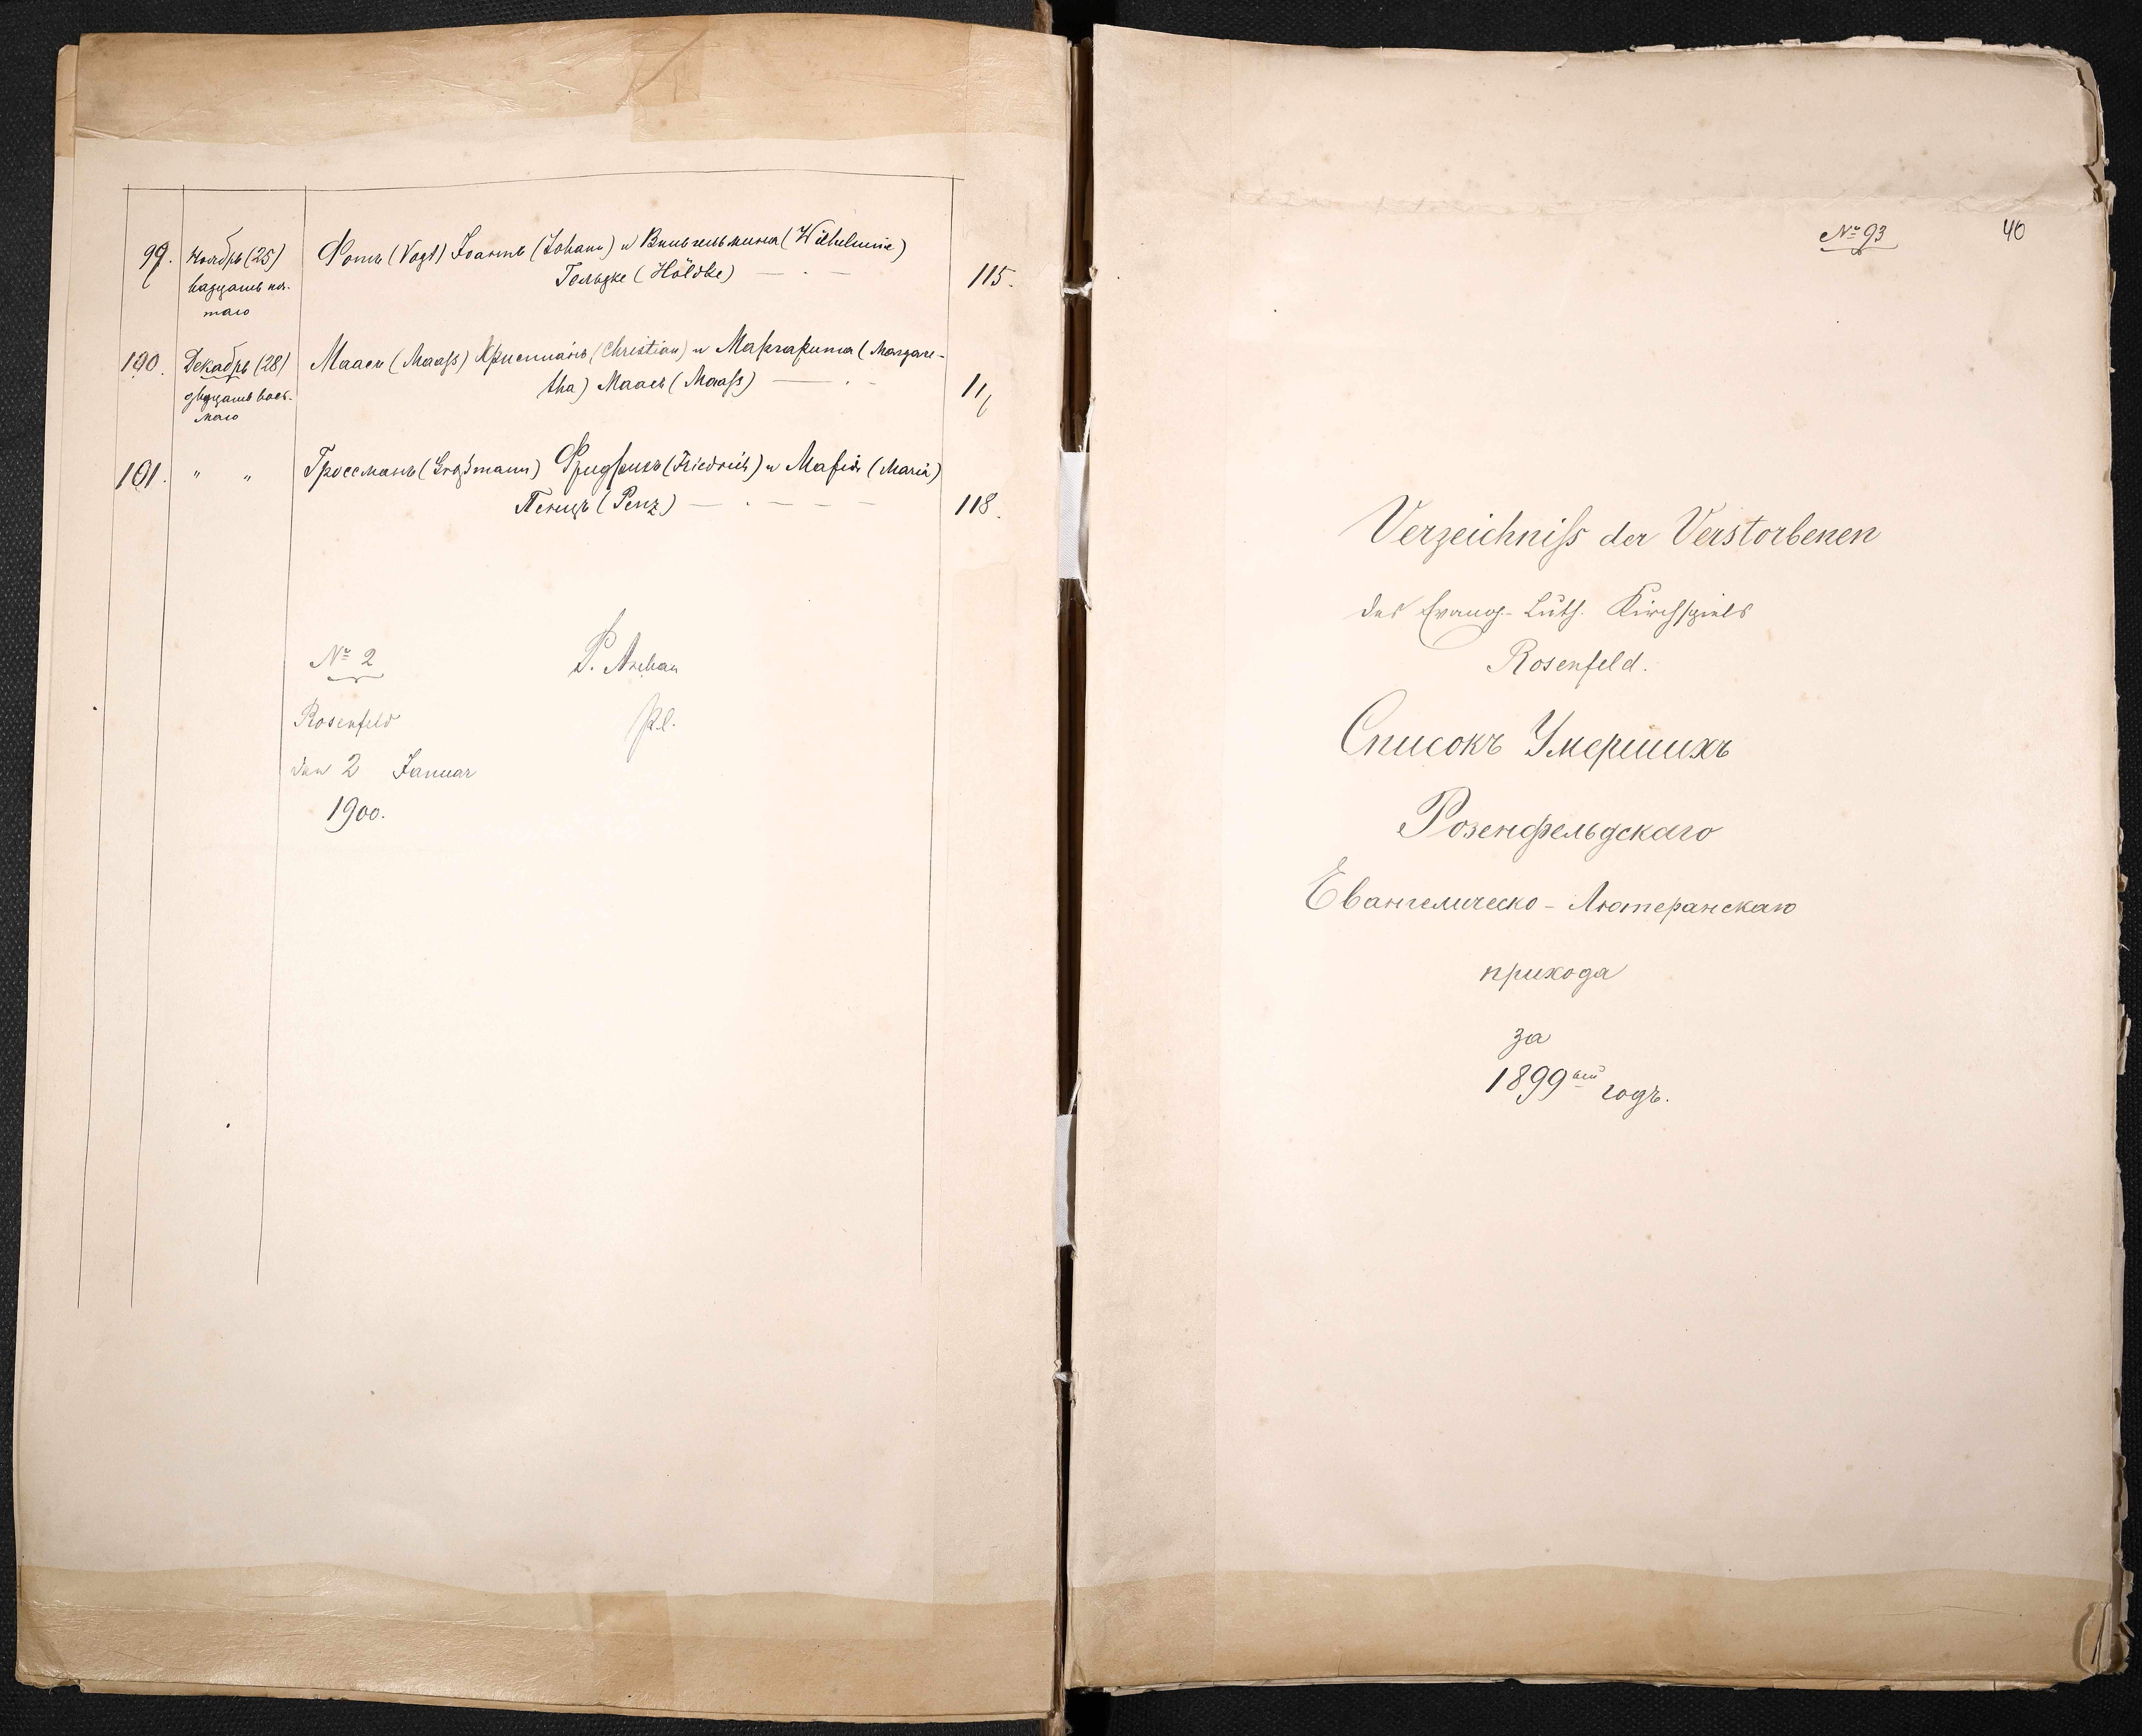 99. Ноябрь (25) Фогтъ (Vogt) Іоаннъ (Johann) и Вильгельмина (Wilhelmine)
вадцать пя- Гольдке (Höldke) — . — 115.
таго
100. Декабрь (28) Маасъ (Maaß) Христіанъ (Christian) и Маргарита (Margare-
двадцать вось- tha) Маасъ (Maaß) — . -
маго
101. " " Гроссманъ (Großmann) Фридрихъ (Friedrich) и Марія (Maria)
Пенцъ (Penz) — . — — — 118.
№ 2 P.
Rosenfeld
den 2 Januar
1900.
№ 93 40
Verzeichniß der Verstorbenen
des Evang.-Luth. Kirchspiels
Rosenfeld.
Списокъ Умершихъ
Розенфельдскаго
Евангелическо - Лютеранскаго
прихода
за
1899ый годъ.